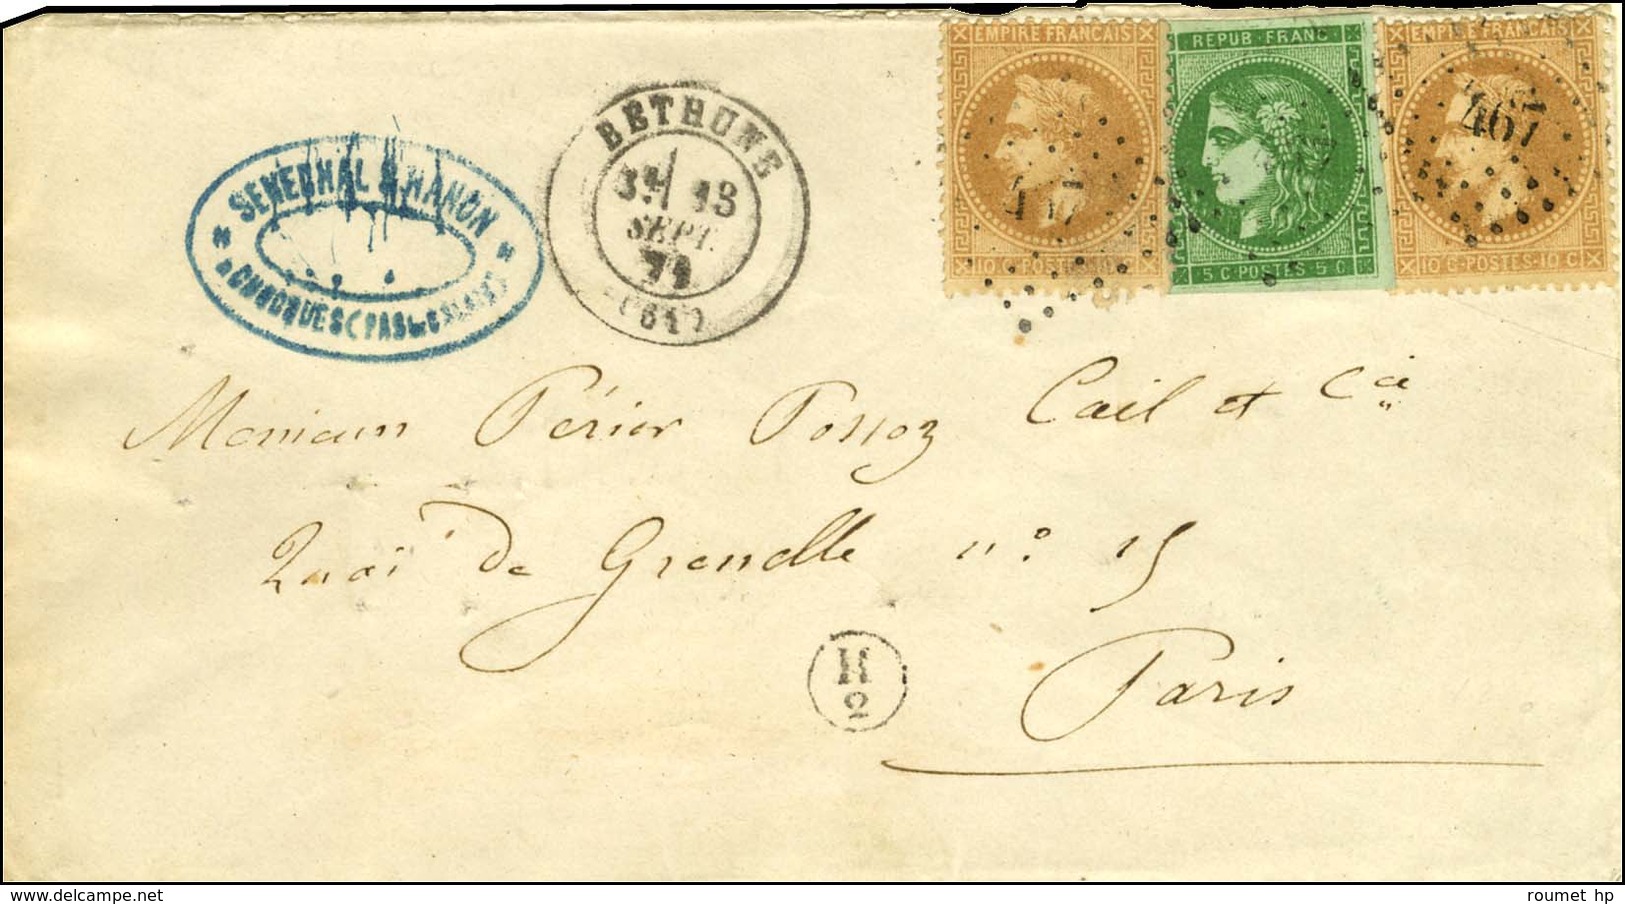 EMPIRE FRANÇAIS
10 C·POSTES·10 C
REPUB·FRANC
5 C·POSTES·5 C
EMPIRE FRANÇAIS
10 C·POSTES·10 C
467
BETHUNE
3E 13
SEPT.
71
(61)
SENECHAL MAHON
CHOCQUES (PAS DE CALAIS)
Monsieur Périer Possoz Cail et Cie
Quai de Grenelle n° 15
Paris
H
2
delcampe.net
roumet hp